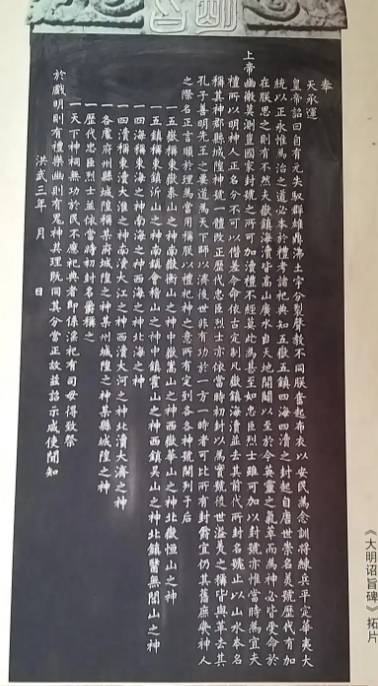 奉
天承運
皇帝詔曰自有元失馭群雄鼎沸土宇分裂聲教不同朕奮起布衣以安民為念訓將練兵平定華夷大
統以正永惟為治之道必本於禮考諸祀典知五嶽五鎮四海四瀆之封起自唐世崇名美號歷代有加
在朕思之則有不然夫嶽鎮海瀆皆高山廣水自天地開闢以至於今英靈之氣萃而為神必皆受命於
上帝幽微莫測豈國家封號之所可加瀆禮不經莫此為甚至如忠臣烈士雖可加以封號亦惟當時為宜夫
禮所以明神人正名分不可以僭差今命依古定制凡嶽鎮海瀆並去其前代所封名號止以山水本名
稱其神郡縣城隍神號一體改正歷代忠臣烈士亦依當時初封以為實號後世溢美之稱皆與革去其
孔子善明先王之要道為天下師以濟後世非有功於一方一時者可比所有封爵宜仍其舊庶幾神人
之際名正言順於理為當用稱朕以禮祀神之意所有定到各各神號開列于后
一五嶽稱東嶽泰山之神南嶽衡山之神中嶽嵩山之神西嶽華山之神北嶽恒山之神
一五鎮稱東鎮沂山之神南鎮會稽山之神中鎮霍山之神西鎮吳山之神北鎮醫無閭山之神
一四海稱東海之神南海之神西海之神北海之神
一四瀆稱東瀆大淮之神南瀆大江之神西瀆大河之神北瀆大濟之神
一各處府州縣城隍稱某府城隍之神某州城隍之神某縣城隍之神
一歷代忠臣烈士並依當時初封名爵稱之
一天下神祠無功於民不應祀典者即係淫祀有司毋得致祭
於戲明則有禮樂幽則有鬼神其理既同其分當正故茲詔示咸使聞知
洪武三年 月 日
《大明诏旨碑》拓片